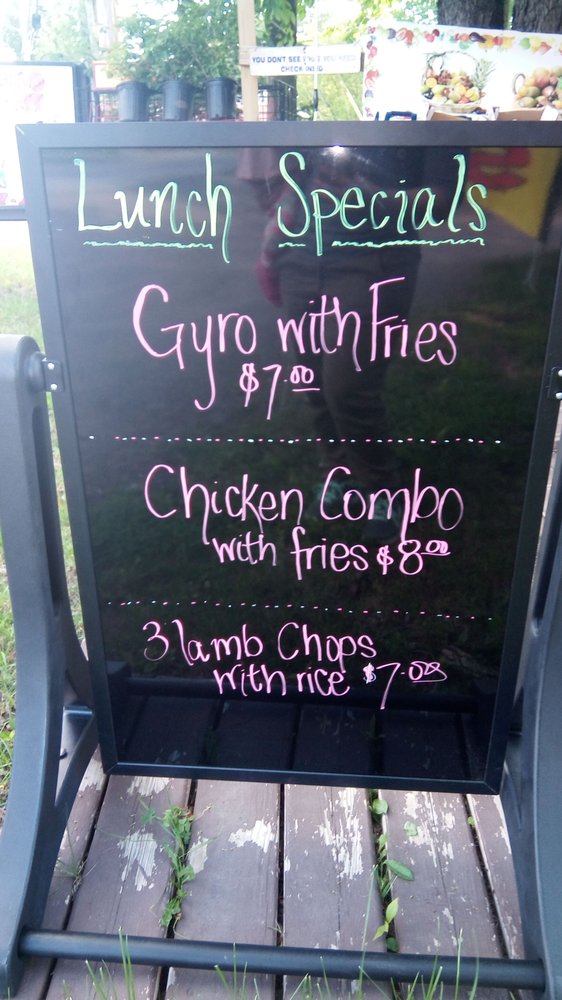 YOU DON'T SEE
CHECK INSIDE
Lunch Specials
Gyro with Fries
$7.00
Chicken Combo
with fries $8.00
3 lamb Chops
with rice $7.00